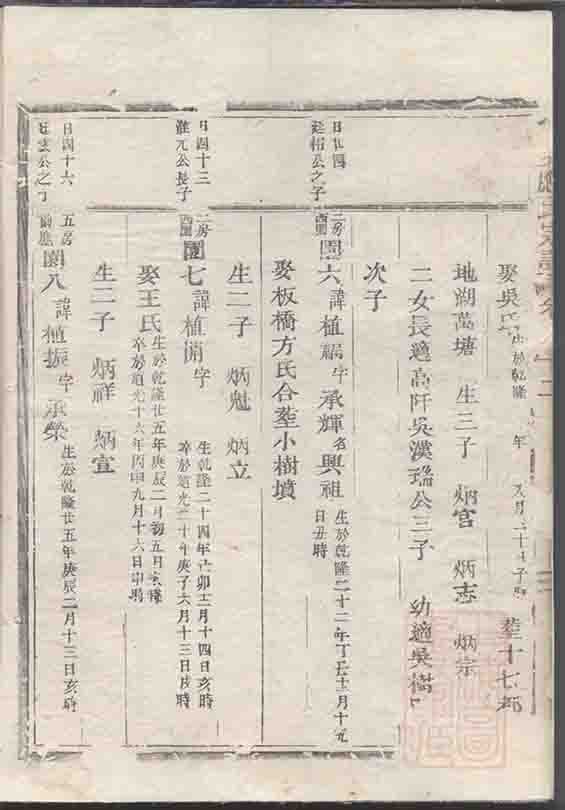 娶吳氏 生於乾隆 年 月 十 子時 葬十七都
地湖萬塘 生三子 炳宮 炳志 炳宗
二女長適高阡吳漢瑞公三子 幼適吳樹
次子
日廿四
廷楷公之子
二房
西園
園六 諱植福字承輝名興祖 生於乾隆二十二年丁丑十二月十九
日丑時
娶板橋方氏合葬小樹墳
生二子 炳魁 炳立
日四十三
廷元公長子
二房
西園
園七 諱植 字 生乾隆二十四年己卯十二月十四日亥時
卒於道光二十年庚子六月十三日 時
娶王氏 生於乾隆廿五年庚辰二月初五月 時
卒於道光十六年丙申九月十六日申時
生二子 炳祥 炳宣
日四十六
廷 公之子
五房
園八 諱植振字承榮 生於乾隆廿五年庚辰二月十三日亥時